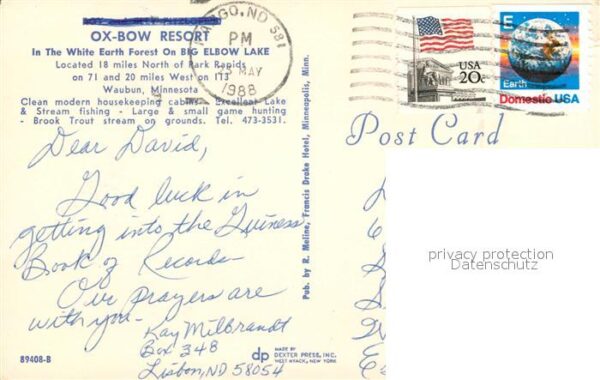 OX-BOW RESORT
In The White Earth Forest On BIG ELBOW LAKE
Located 18 miles North of Park Rapids
on 71 and 20 miles West on 113
Waubun, Minnesota
Clean modern housekeeping cabins - Excellent Lake
& Stream fishing - Large & small game hunting
- Brook Trout stream on grounds. Tel. 473-3531.
GO, ND 581
PM
MAY
1988
USA
20c
E
Earth
Domestic USA
Post Card
Dear David,
Good luck in
getting into the Guiness
Book of Records
Our prayers are
with you-
Kay Milbrandt
Box 348
Lisbon, ND 58054
Pub. by R. Meline, Francis Drake Hotel, Minneapolis, Minn.
privacy protection
Datenschutz
89408-B
dp
MADE BY
DEXTER PRESS, INC.
WEST NYACK, NEW YORK